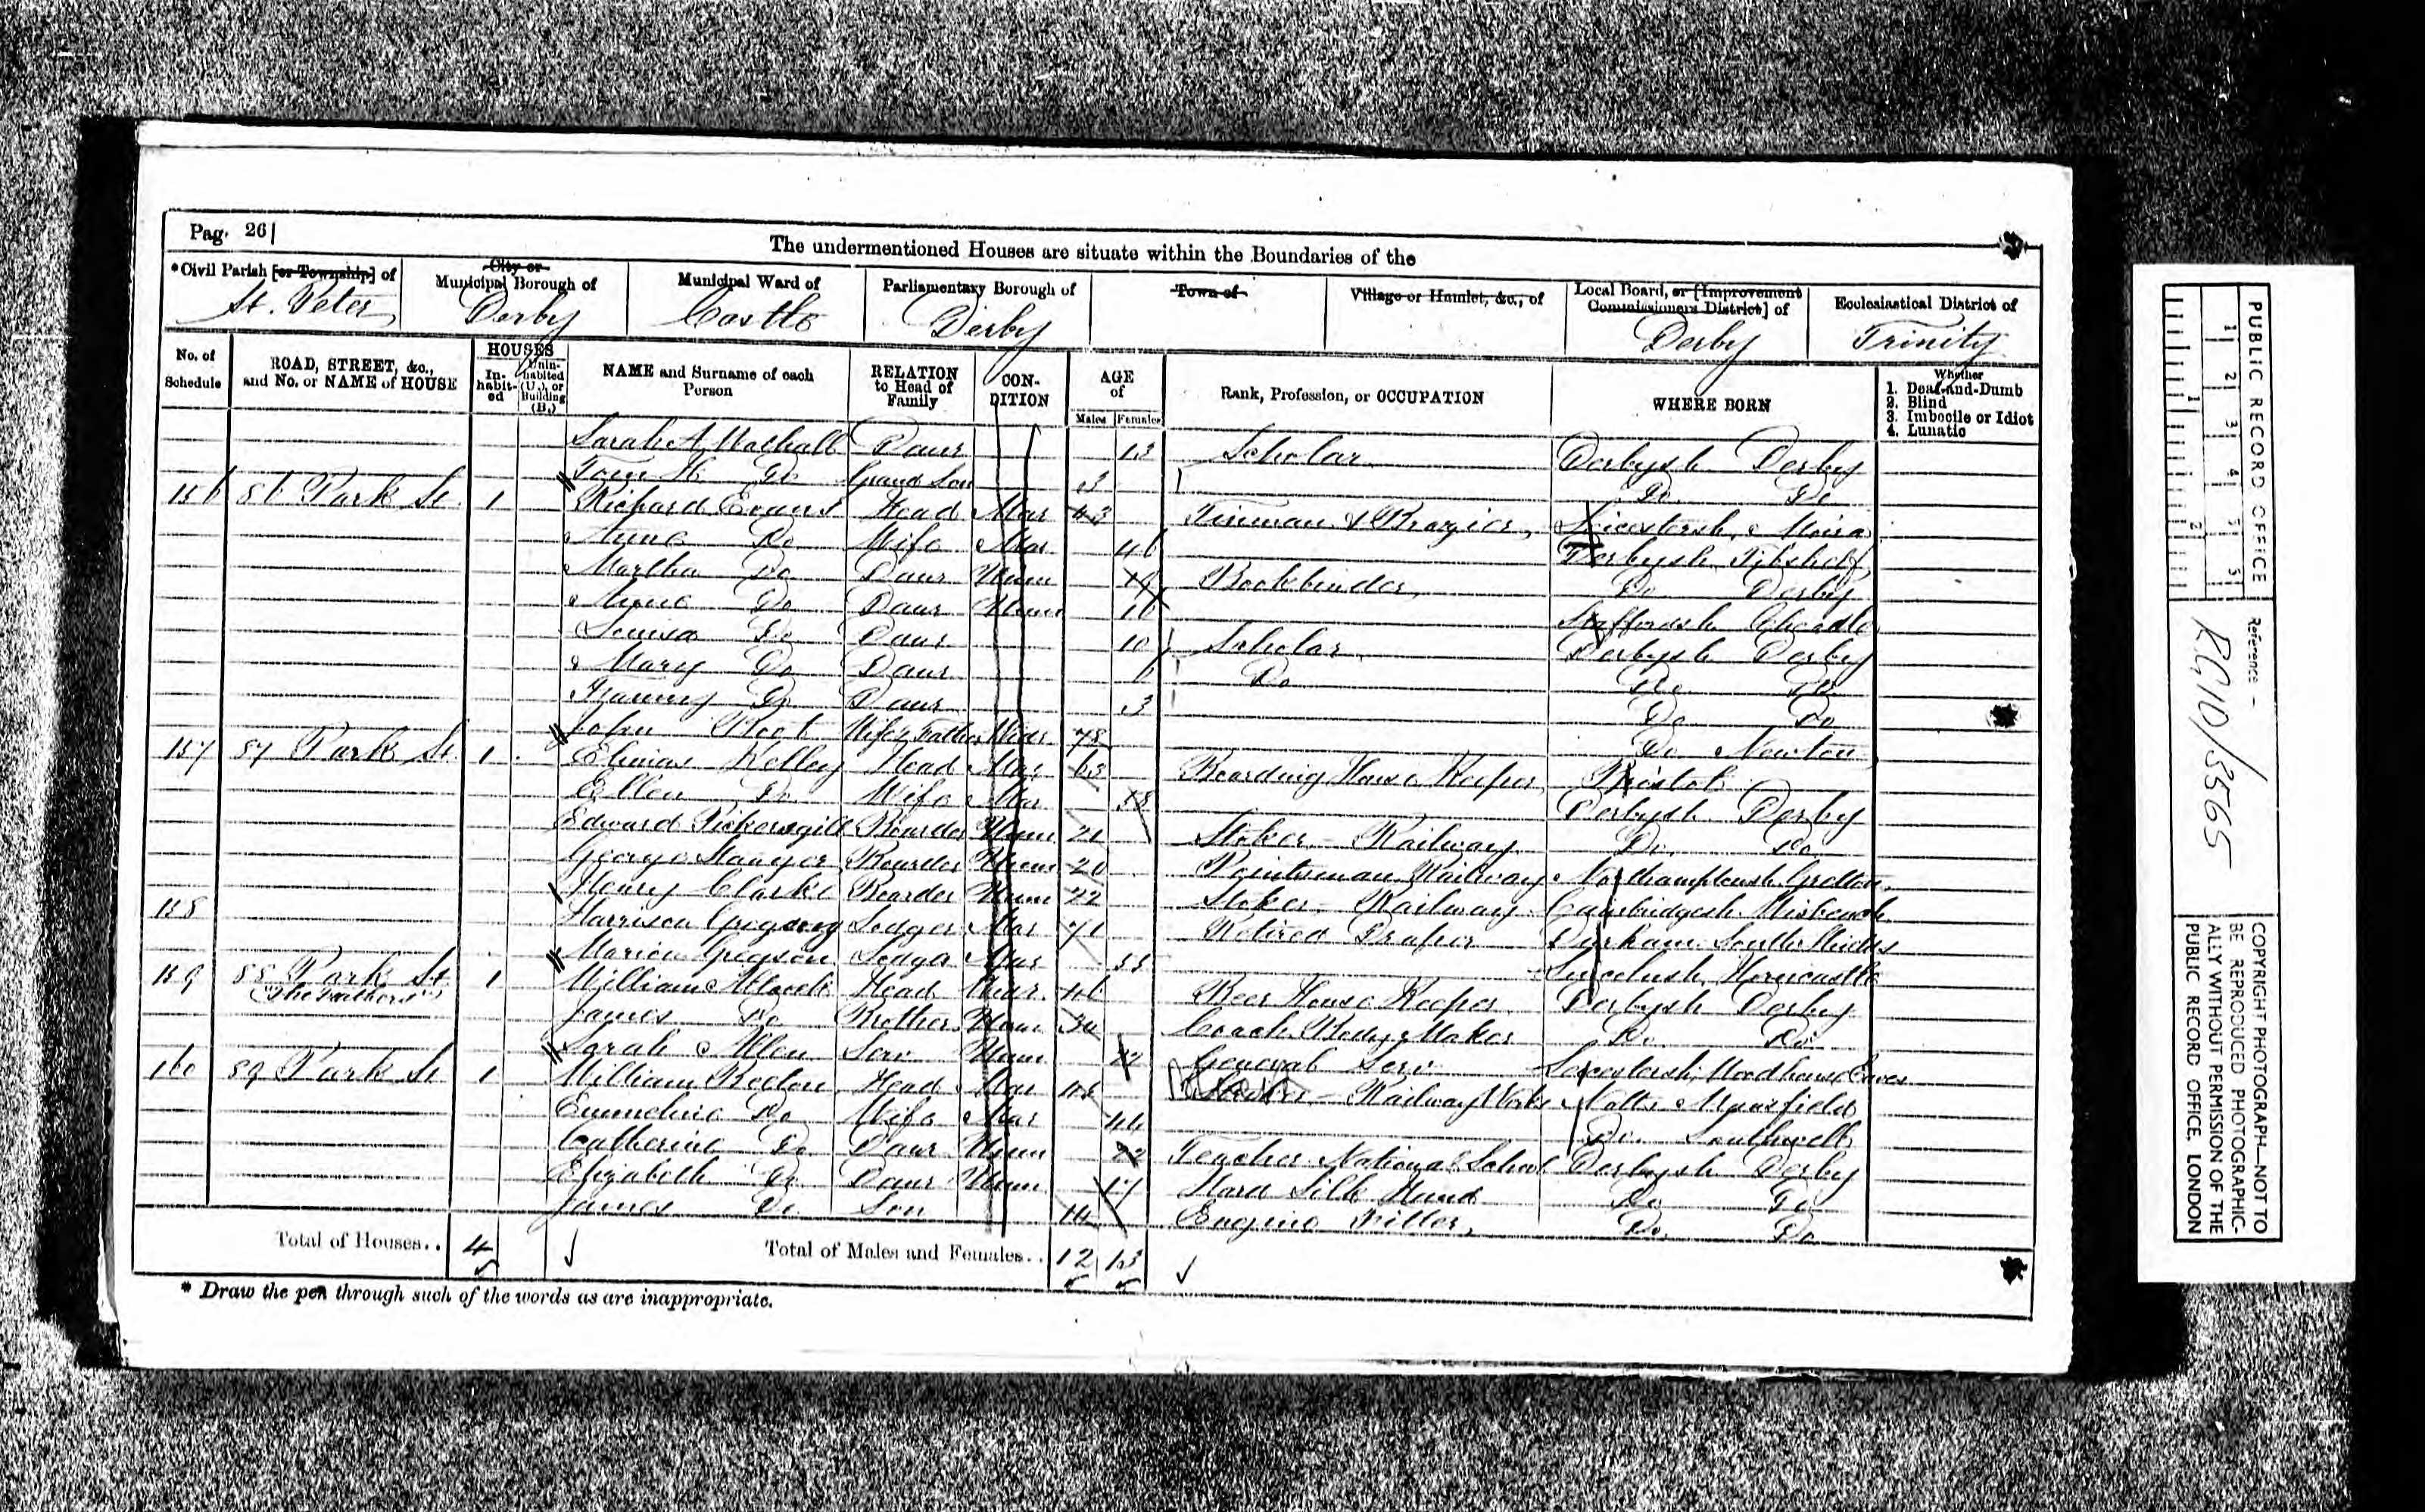 Pag. 26
The undermentioned Houses are situate within the Boundaries of the
*Civil Parish [or Township] of
City or Municipal Borough of
Municipal Ward of
Parliamentary Borough of
Town of
Village or Hamlet, &c., of
Local Board, or [Improvement Commissioners District] of
Ecclesiastical District of
St. Peter Derby Castle Derby Derby Trinity
No. of Schedule
ROAD, STREET, &c., and No. or NAME of HOUSE
HOUSES
In-habit-ed
Unin-habited (U.), or Building (B.)
NAME and Surname of each Person
RELATION to Head of Family
CON-DITION
AGE of
Males Females
Rank, Profession, or OCCUPATION
WHERE BORN
Whether
1. Deaf-and-Dumb
2. Blind
3. Imbecile or Idiot
4. Lunatic
Sarah A Daur 13 Scholar Derbysh Derby
Tom H Do Grand Son 3 Do Do
156 86 Park St. 1 Richard Evans Head Mar 43 Tinman & Brazier, Leicestersh, Moira
Anne Do Wife Mar 46 Derbysh Tibshelf
Martha Do Daur Unm 19 Bookbinder, Do Derby
Anne Do Daur Unm 16 Staffordsh Cheadle
Louisa Do Daur 10 Scholar Derbysh Derby
Mary Do Daur 6 Do Do Do
Fanny Do Daur 3 Do Do
John Wifes Father Widr 78 Do Newton
157 87 Park St. 1 Kelley Head Mar 63 Boarding House Keeper Bristol
Ellen Do Wife Mar 58 Derbysh Derby
Edward Pickersgill Boarder Unm 21 Stoker - Railway Do Do
George Boarder Unm 20 Pointsman Railway Northamptonsh Gretton
Henry Clarke Boarder Unm 22 Stoker - Railway Cambridgesh Wisbeach
158 Harrison Lodger Mar 71 Retired Draper Durham South Shields
Maria Gregson Lodger Mar 55 Lincolnsh, Horncastle
159 88 Park St 1 William Head Unmar. 46 Beer House Keeper Derbysh Derby
"The Feathers"
James Do Brother Unm 34 Coach Body Maker Do Do
Sarah Allen Serv Unm 22 General Serv Leicestersh, Woodhouse Eaves
160 89 Park St 1 William Head Mar 48 - Railway Works Notts Mansfield
Emmeline Do Wife Mar 44 Do. Southwell
Catherine Do Daur Unm 22 Teacher National School Derbysh Derby
Elizabeth Do Daur Unm 17 Hard Silk Hand Do Do
James Do Son 14 Engine Fitter, Do Do
Total of Houses.. 4
Total of Males and Females.. 12 13
* Draw the pen through such of the words as are inappropriate.
PUBLIC RECORD OFFICE
1 2 3 4 5 6
1 2
Reference -
RG10/3565
COPYRIGHT PHOTOGRAPH—NOT TO
BE REPRODUCED PHOTOGRAPHIC-
ALLY WITHOUT PERMISSION OF THE
PUBLIC RECORD OFFICE, LONDON